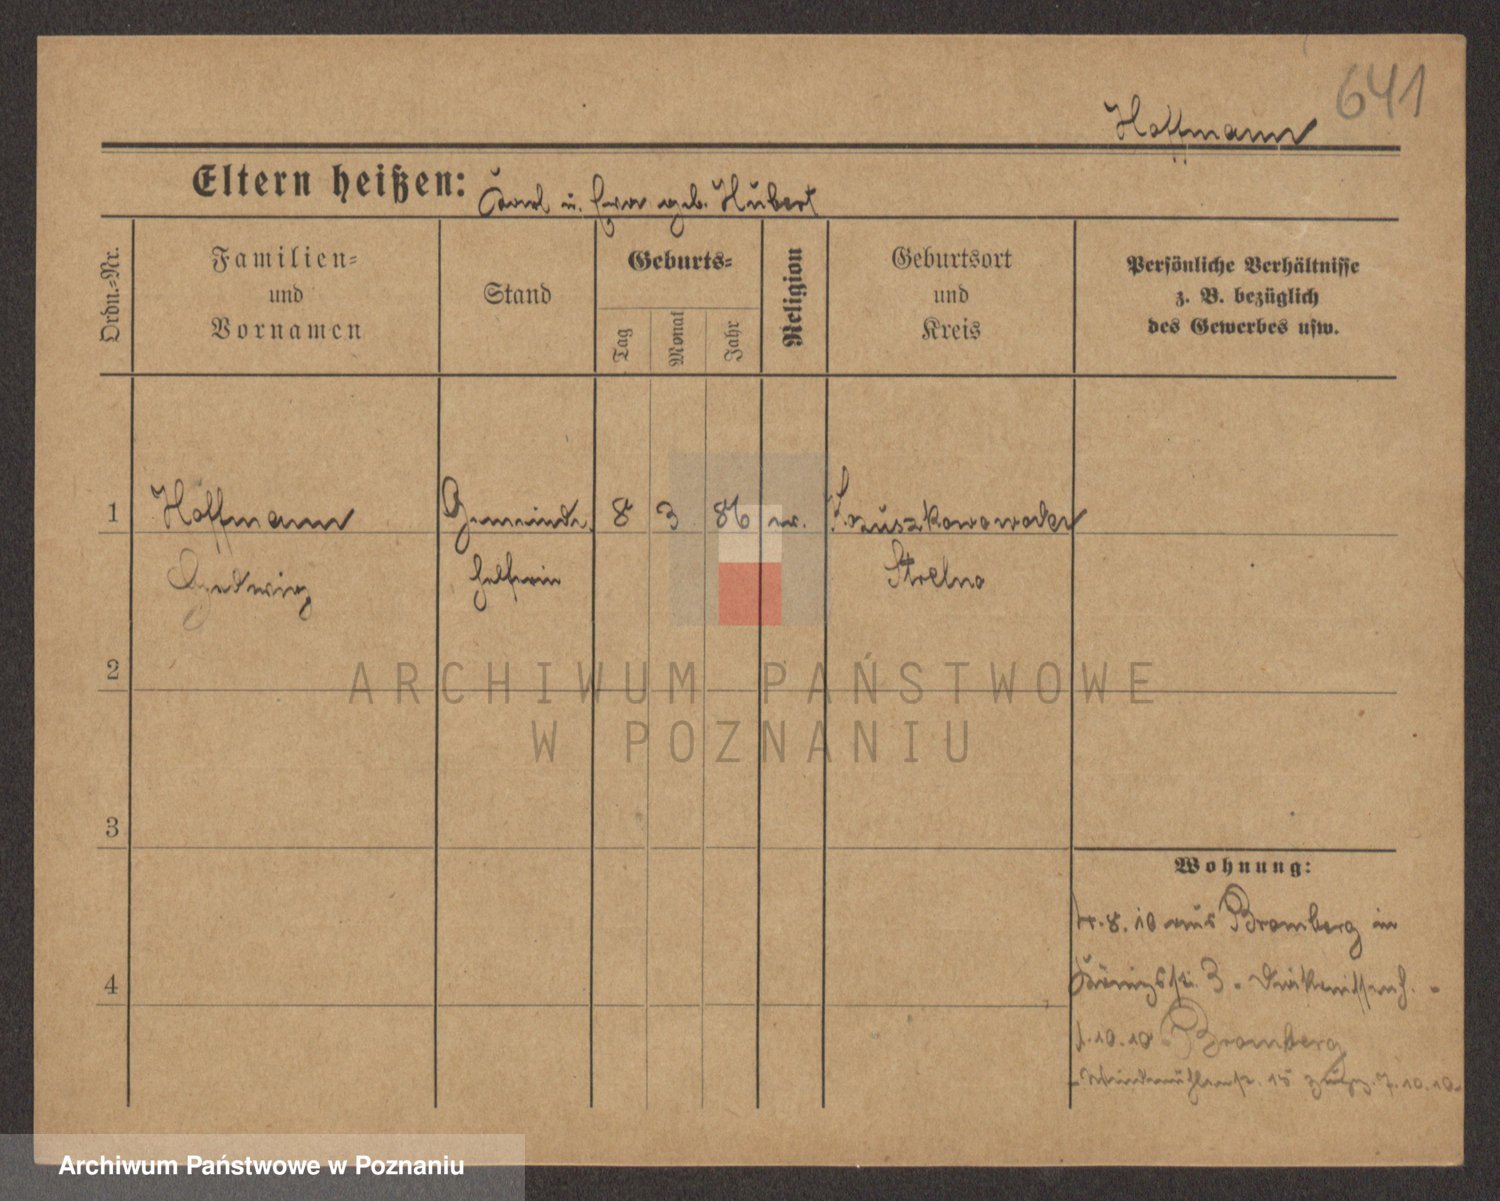 641
Hoffmann
Eltern heißen: Karl u. geb. Hubert
Ordn.-Nr.
Familien-
und
Vornamen
Stand
Geburts-
Tag
Monat
Jahr
Religion
Geburtsort
und
Kreis
Persönliche Verhältnisse
z. B. bezüglich
des Gewerbes usw.
1 Hoffmann Gemeinde 8 3 86 ev.
Hedwig helferin Strelno
2
3
4
Wohnung:
4.8.10 aus Bromberg in
Königstr. 3.
1.10.10 Bromberg
15 7.10.10.
ARCHIWUM PAŃSTWOWE
W POZNANIU
Archiwum Państwowe w Poznaniu